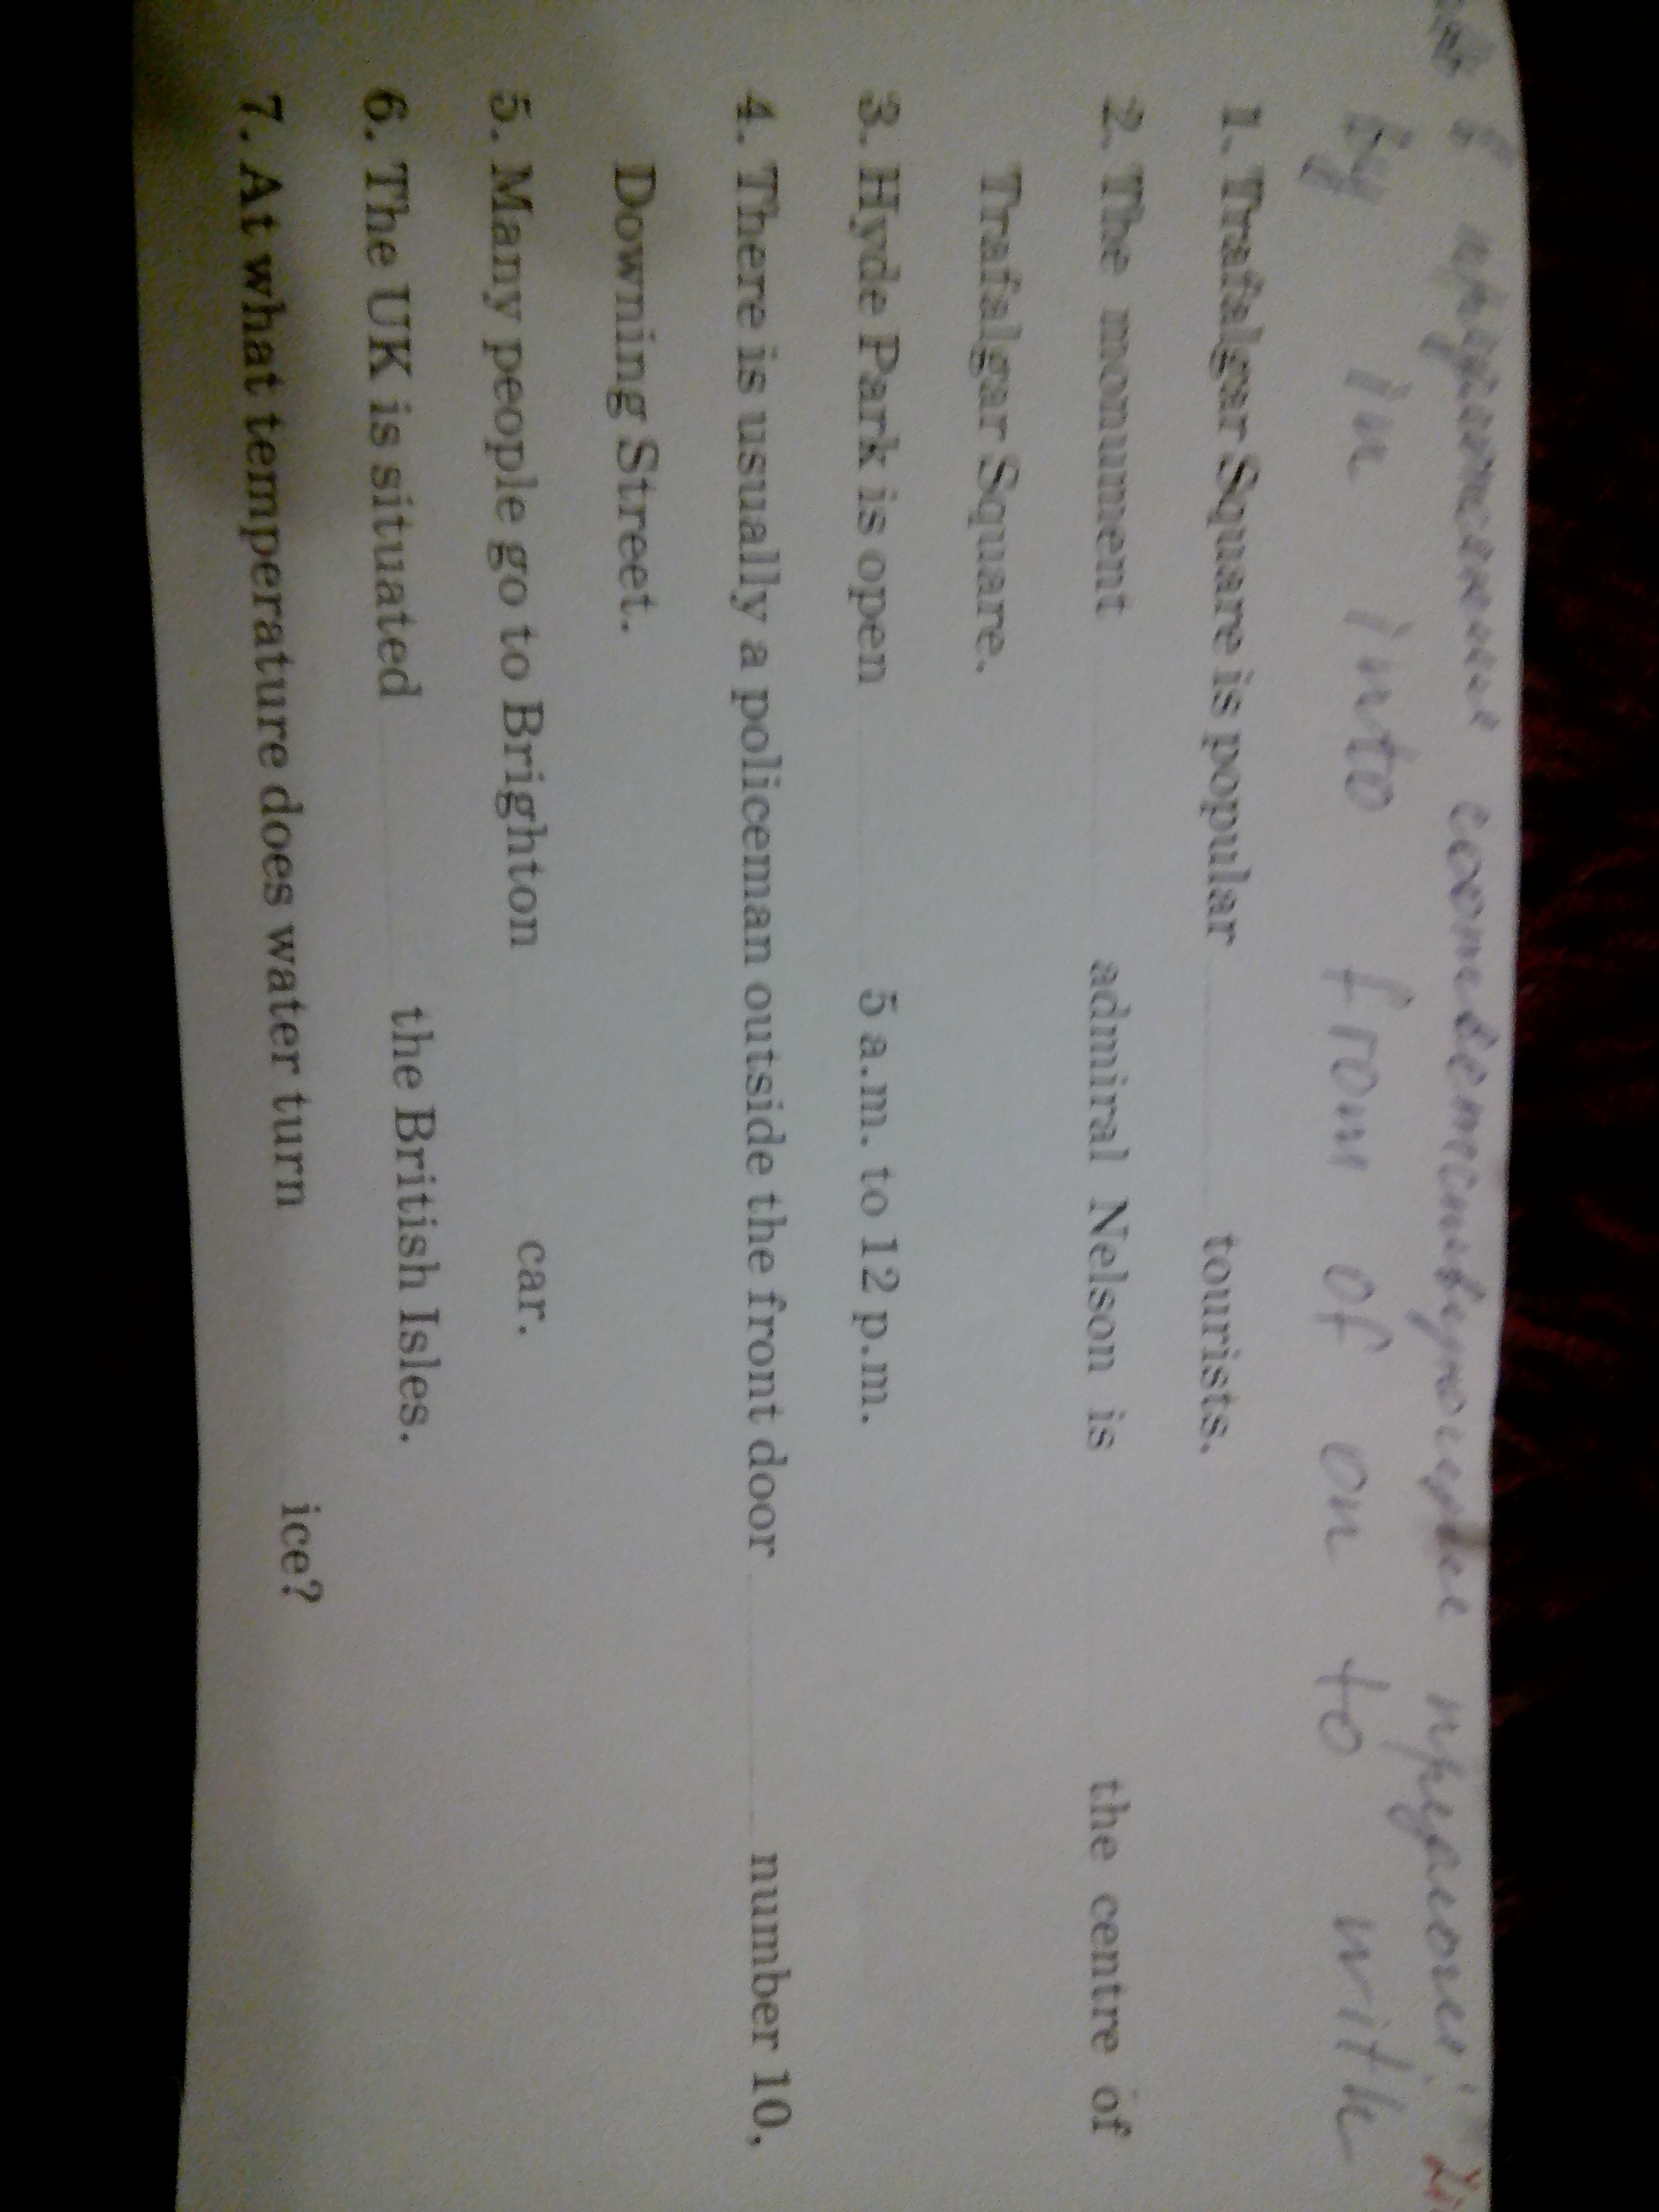 в предложения соответствующие предлоги:
by in into from of on to with
1. Trafalgar Square is popular tourists.
2. The monument admiral Nelson is the centre of
Trafalgar Square.
3. Hyde Park is open 5 a.m. to 12 p.m.
4. There is usually a policeman outside the front door number 10,
Downing Street.
5. Many people go to Brighton car.
6. The UK is situated the British Isles.
7. At what temperature does water turn ice?